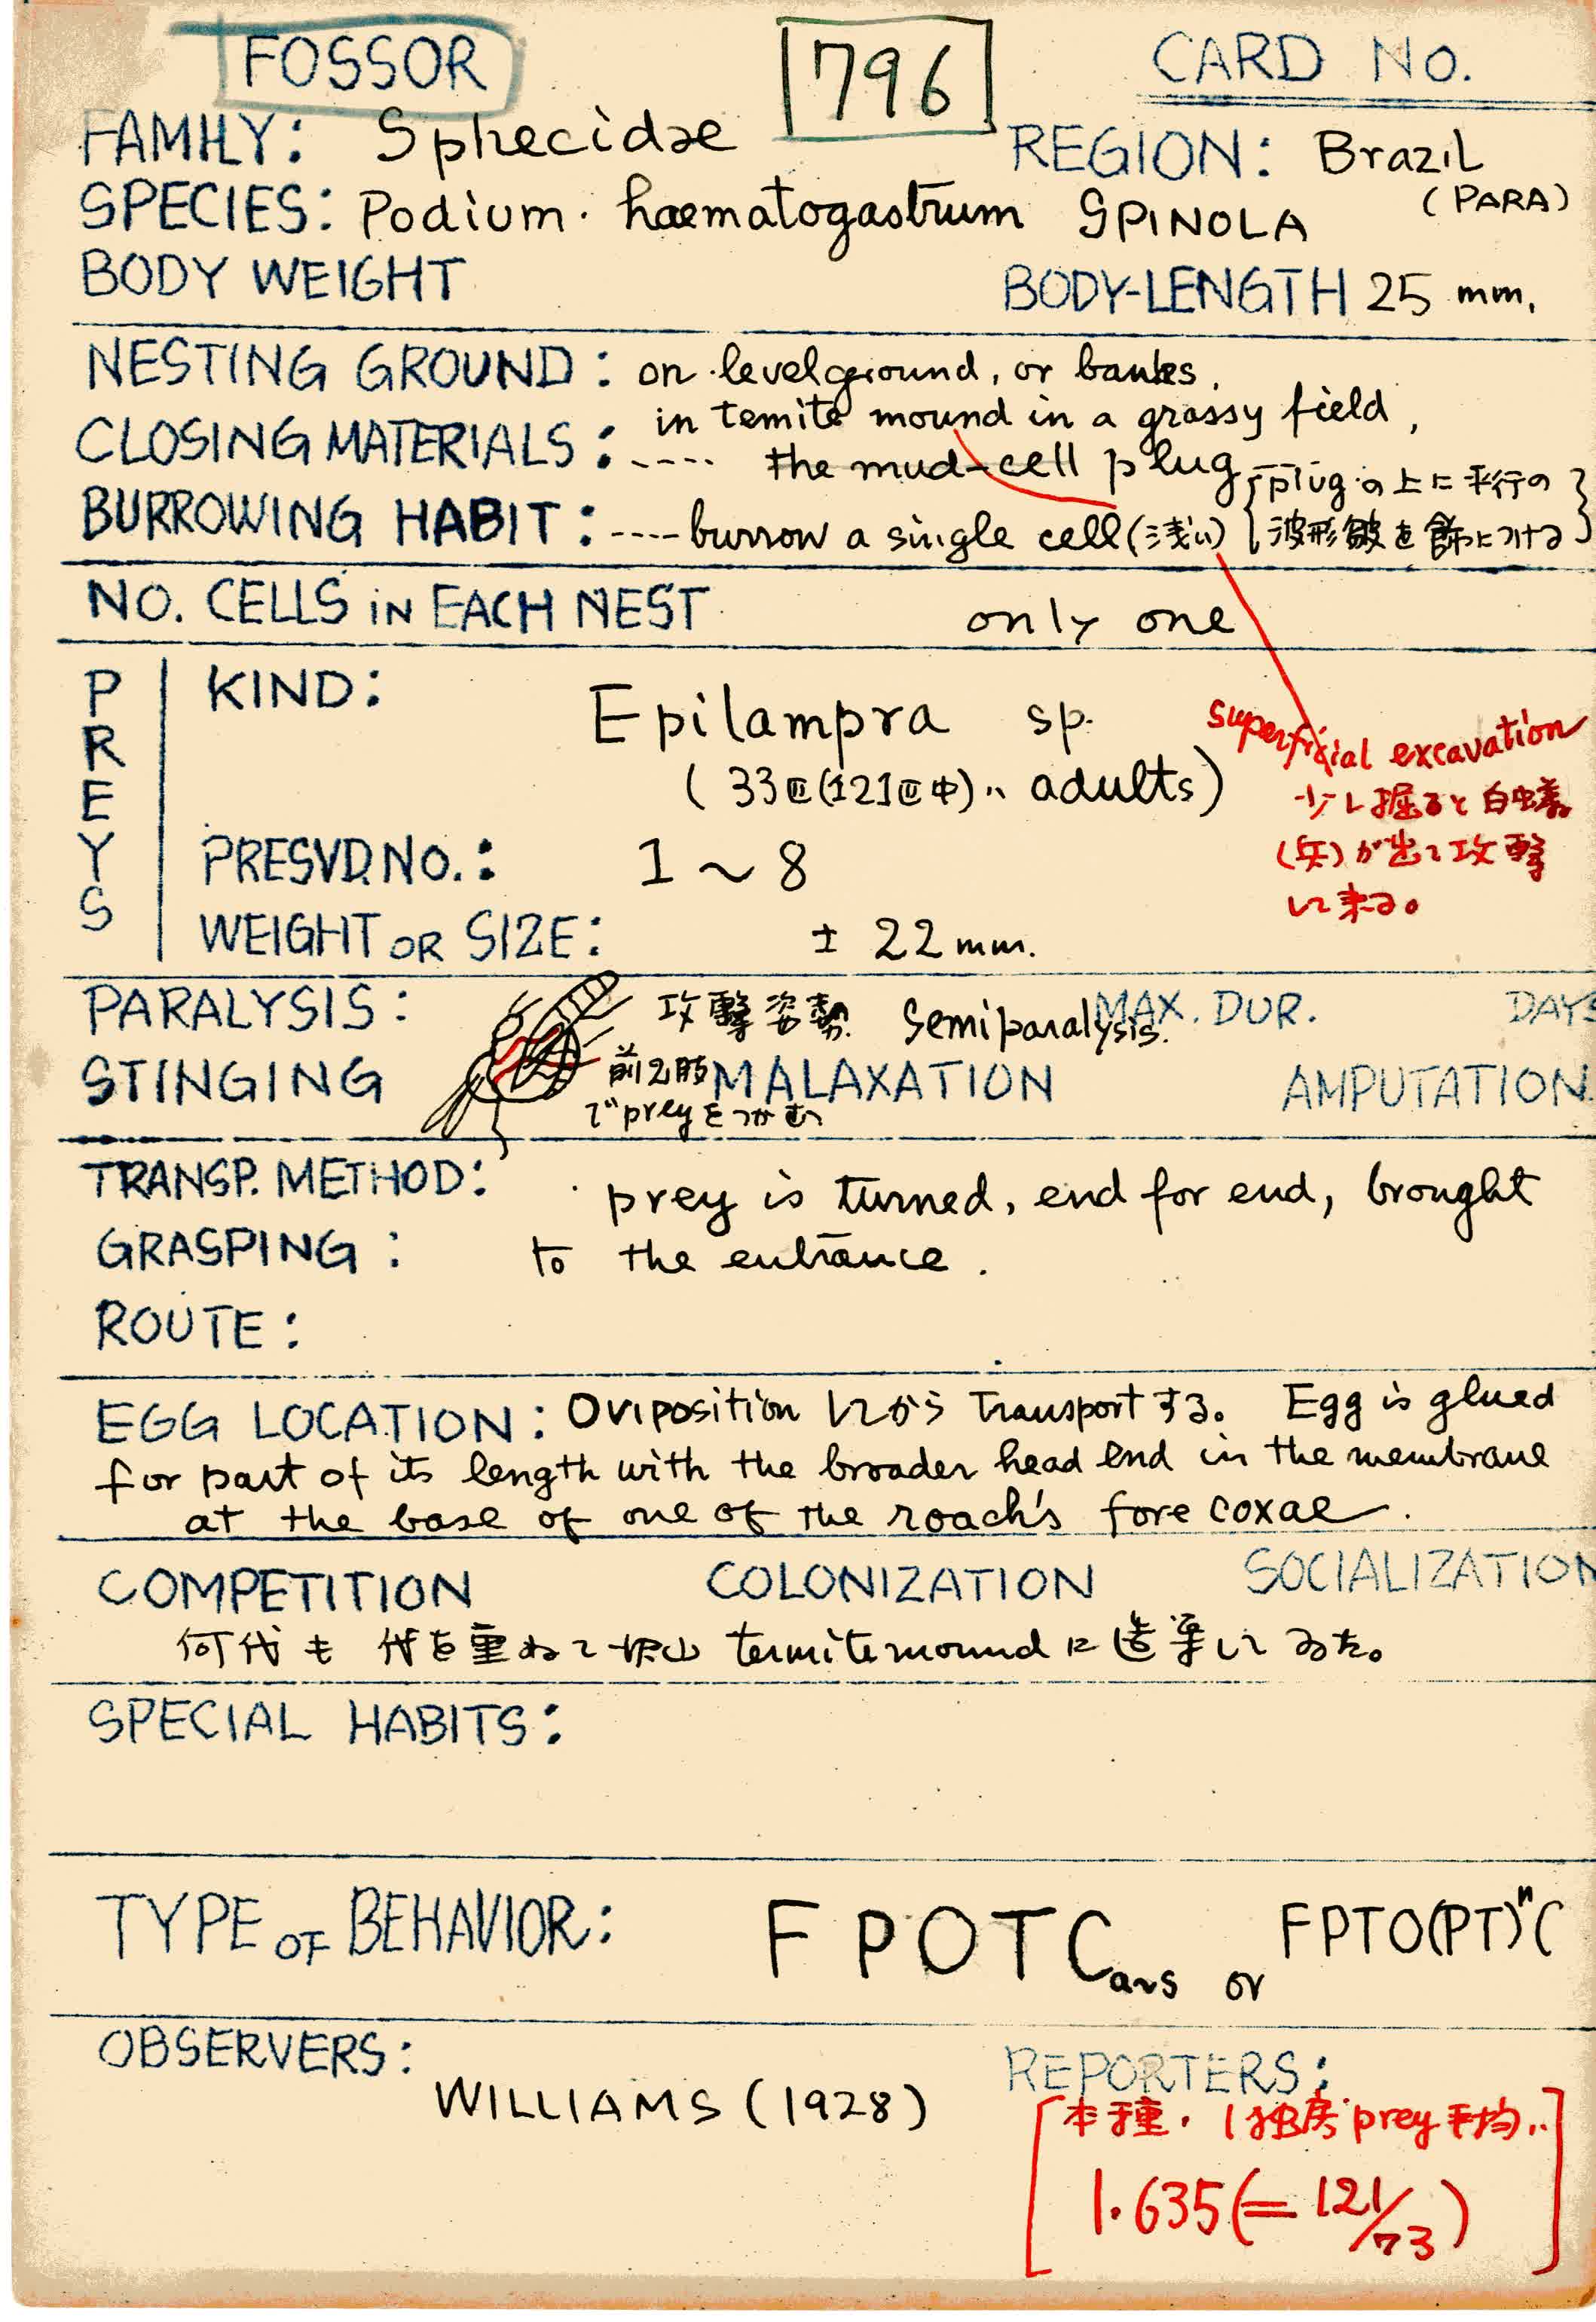 FOSSOR
796
CARD No.
FAMILY: Sphecidae
REGION: Brazil
(PARA)
SPECIES: Podium haematogastrum SPINOLA
BODY WEIGHT
BODY-LENGTH 25 mm.
NESTING GROUND: on level ground, or banks,
in temite mound in a grassy field,
CLOSING MATERIALS: ---- the mud-cell plug
{plugの上に平行の
波形皺を飾につける}
BURROWING HABIT: ---- burrow a single cell (浅い)
NO. CELLS iN EACH NEST only one
PREYS
KIND: Epilampra sp.
(33匹(121匹中)〃 adults)
superficial excavation
少し掘ると白蟻
(兵)が出て攻撃
して来る。
PRESVD. NO.: 1 ~ 8
WEIGHT OR SIZE: ± 22 mm.
PARALYSIS: 攻撃姿勢. Semiparalysis.
MAX. DUR. DAYS
STINGING
前2肢
でpreyをつかむ
MALAXATION
AMPUTATION
TRANSP. METHOD: prey is turned, end for end, brought
GRASPING: to the entrance.
ROUTE:
EGG LOCATION: Oviposition してから Transportする。 Egg is glued
for part of its length with the broader head end in the membrane
at the base of one of the roach's fore coxae.
COMPETITION
COLONIZATION
SOCIALIZATION
何代も 代を重ねて termite mound に造巣してゐた。
SPECIAL HABITS:
TYPE OF BEHAVIOR: FPOTCans or FPTO(PT)ⁿC
OBSERVERS:
WILLIAMS (1928)
REPORTERS:
[本種. 1独房 prey 平均..
1.635 (= 121/73)]